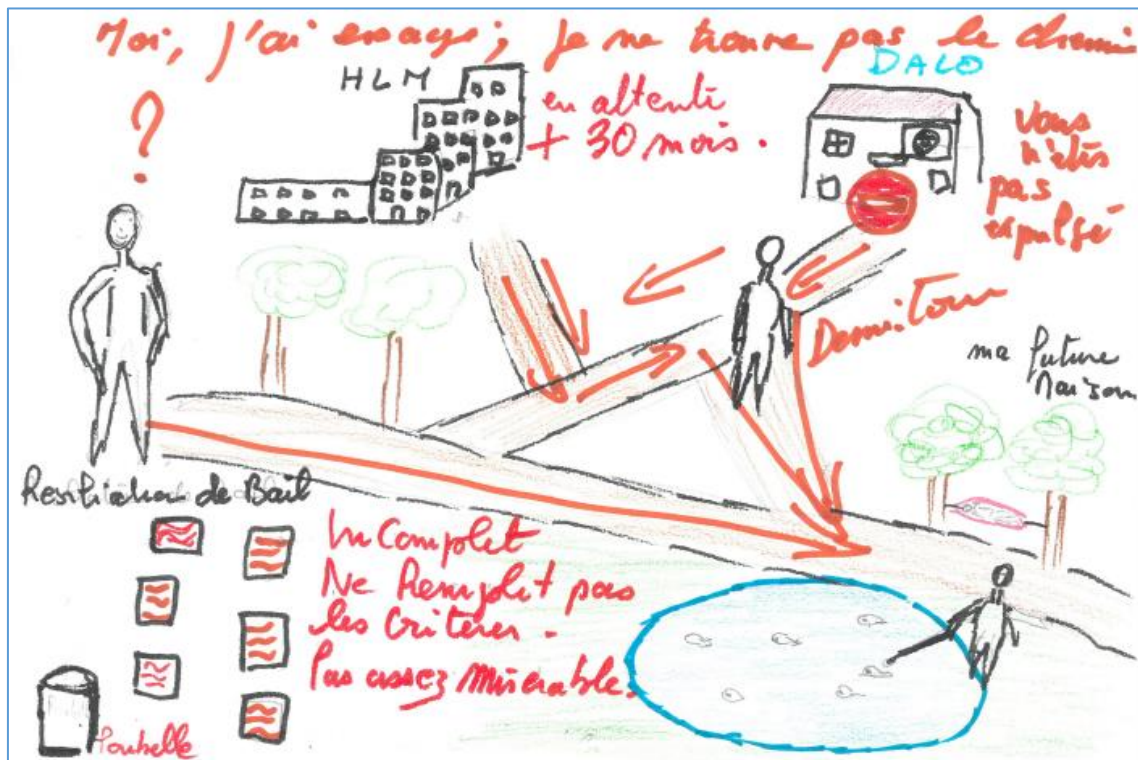 Moi, j'ai essayé; je ne trouve pas le chemin
HLM
DALO
?
en attente
+ 30 mois.
Vous
n'etes
pas
expulsé
Demi.Tour
ma future
Maison
Resiliation de Bail
InComplet
Ne Remplit pas
les Critères.
Pas assez Miserable.
Poubelle